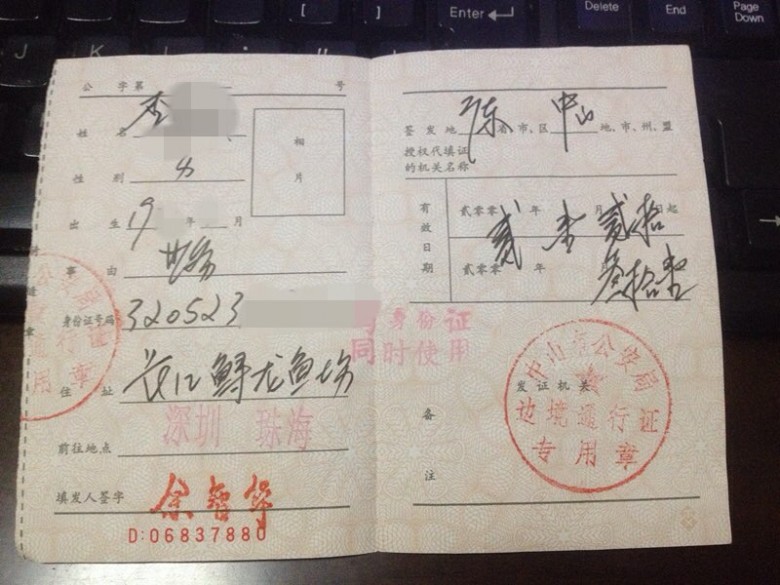 Enter
Delete
End
Page Down
公 字第 号
姓 名 李
相 片
性 别 女
出 生 19 年 月
事 由 出务
身份证号码 320523
住 址 长江鲟龙鱼场
深圳 珠海
前往地点
填发人签字 余智华
D:06837880
签 发 地 广东 省市、区 中山 地、市、州、盟
授权代填证
的机关名称
有效日期
贰零零 年 月 日起
贰零零 年
叁拾壹
与身份证
同时使用
中山市公安局
发证机关
边境通行证
专用章
备
注
公安局
通行证
用章